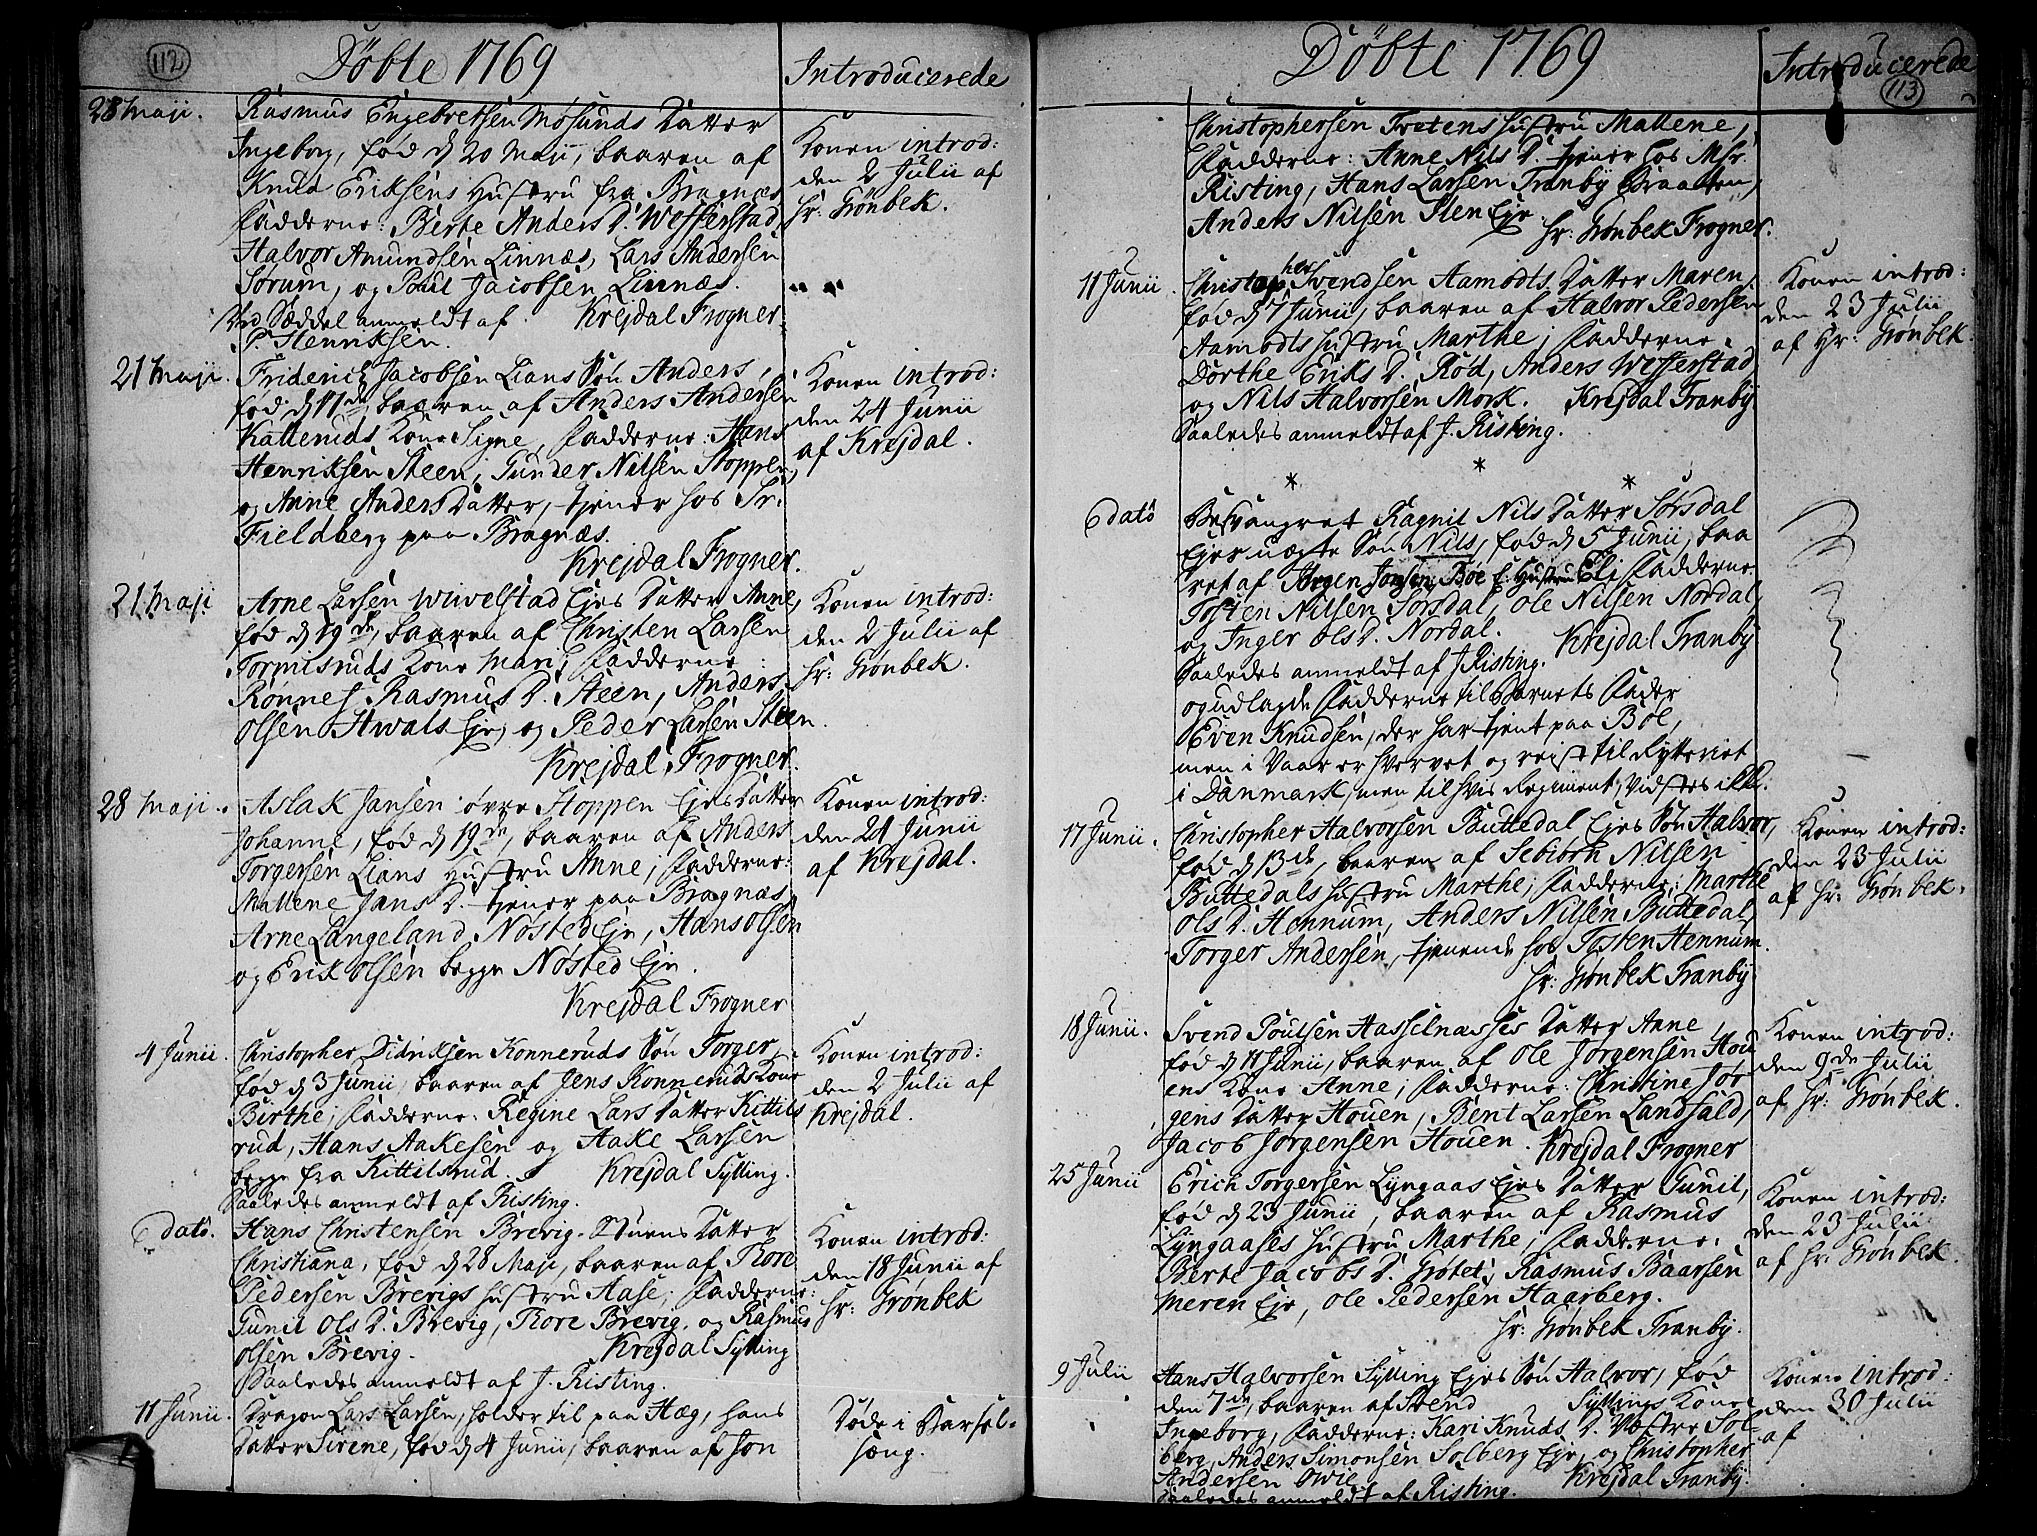 112
Döbte 1769
Introducerede
28 Maji.
Rasmus Engebretsen Møsunds Datter
Ingeborg, fød d 20 Maij, baaren af
Knud Eriksens Hustru fra Bragnæs
Fadderne: Berte Anders D. Wefferstad,
Halvor Amundsen Linnæs, Lars Andersen
Sørum, og Poul Jacobsen Linnæs.
Ved Sæddel anmeldt af Krejdal Frogner.
P. Henriksen.
Konen introd:
den 2 Julii af
Hr: Grönbek.
21 Maji.
Friderich Jacobsen Lians Søn Anders,
fød d 17de, baaren af Anders Andersen
Kalleruds Kone Signe, Fadderne: Hans
Henriksen Steen, Gunder Nilsen Stoppen,
og Anne Anders Datter, tjener hos Sr.
Fieldberg paa Bragnæs.
Krejdal Frogner.
Konen introd:
den 24 Junii
af Krejdal.
21 Maji
Arne Larsen Wiwelstad Ejes Datter Anne,
fød d 19de, baaren af Christen Larsen
Tormisruds Kone Mari; Fadderne:
Rönnej Rasmus D. Steen, Anders
Olsen Hwals Eje, og Peder Larsen Steen.
Krejdal, Frogner.
Konen introd:
den 2 Julii af
Hr: Grönbek.
28 Maji.
Aslak Jansen øvre Stoppen Ejes Datter
Johanne, fød d 19de, baaren af Anders
Torgersen Lians Hustru Anne; Fadderne:
Mallene Jans D. tjener paa Bragnæs,
Arne Langeland Nøsted Eje, Hans Olsen
og Erik Olsen begge Nøsted Eje.
Krejdal Frogner
Konen introd:
den 24 Junii
af Krejdal.
4 Junii.
Christopher Didriksen Konneruds Søn Torger,
fød d 3 Junii, baaren af Jens Konneruds Kone
Birthe; Fadderne: Regine Lars Datter Kittils
rud, Hans Aakesen og Aake Larsen
begge fra Kittilsrud. Krejdal Sylling.
Saaledes anmeldt af Risting.
Konen introd:
den 2 Julii af
Krejdal.
E dato.
Hans Christensen Brevig-Stuens Datter
Christiana, fød d 28 Maji, baaren af Tore
Pedersen Brevigs Hustru Aase; Fadderne:
Gunil Ols D. Brevig, Tore Brevig, og Rasmus
Olsen Brevig. Krejdal Sylling
Saaledes anmeldt af J. Risting.
Konen introd:
den 18 Junii af
Hr: Grönbek
11 Junii.
Dragon Lars Larsen, holder til paa Hæg, hans
Datter Sirene, fød d 4 Junii, baaren af Jon
Døde i Barsel-
sæng.
Döbte 1769
Introducerede
113
Christophersen Tvetens Hustru Mallene,
Fadderne: Anne Nils D. tjener hos Msr.
Risting, Hans Larsen Tranby Braaten,
Anders Nilsen Sten Eje.
Hr: Grönbek Frogner.
11 Junii.
Christopher Svendsen Aamodts Datter Maren,
fød d 7 Junii, baaren af Halvor Pedersen
Aamodts Hustru Marthe; Fadderne:
Dorthe Eriks D. Rød, Anders Wefferstad
og Nils Halvorsen Mork. Krejdal Tranby
Saaledes anmeldt af J. Risting.
Konen introd:
den 23 Julii
af Hr: Grönbek.
* * *
E dato
Besvangret Ragnil Nils Datter Sørsdal
Ejes uægte Søn Nils, fød d 5 Junii, baa
ret af Jörgen Jonsen Böe s: Hustru Eli Fadderne
Tosten Nilsen Sørsdal, Ole Nilsen Nordal,
og Inger Ols D. Nordal. Krejdal Tranby
Saaledes anmeldt af J. Risting.
og udlagde Fadderne til Barnets Fader
Even Knudsen, der har tjent paa Böe,
men i Vaar er hvervet og rejst til Rytteriet
i Danmark, men til hvis Regiment, vidstes ikke.
17 Junii.
Christopher Halvorsen Buttedal Ejes Søn Halvor,
fød d 13de, baaren af Sebiörn Nilsen
Buttedals Hustru Marthe; Fadderne: Marthe
Ols D. Hennum, Anders Nilsen Buttedal,
Torger Andersen, tjenende hos Tosten Hennum.
Hr: Grönbek Tranby
Konen introd:
den 23 Julii
af Hr: Grönbek.
18 Junii.
Svend Poulsen Hasselnæsses Datter Anne
fød d 11 Junii, baaren af Ole Jörgensen Hou
ens Kone Anne; Fadderne: Christine Jör
gens Datter Houen, Bent Larsen Landfald,
Jacob Jörgensen Houen. Krejdal Frogner
Konen introd:
den 9de Julii
af Hr: Grönbek.
25 Junii
Erich Torgersen Lyngaas Ejes Datter Gunil,
fød d 23 Junii, baaren af Rasmus
Lyngaases Hustru Marthe; Fadderne:
Berte Jacobs D. Grøtet, Rasmus Baarsen
Meren Eje, Ole Pedersen Haarberg.
Hr: Grönbek Tranby.
Konen introd:
den 23 Julii
af Hr: Grönbek.
9 Julii
Hans Halvorsen Sylling Ejes Søn Halvor, fød
den 7de, baaren af Svend Syllings Kone
Ingeborg, Fadderne: Kari Knuds D. Vestre Sol-
berg, Anders Simonsen Solberg Eje, og Christopher
Andersen Owie. Krejdal Tranby.
Saaledes anmeldt af Risting.
Konen introd:
den 30 Julii
af